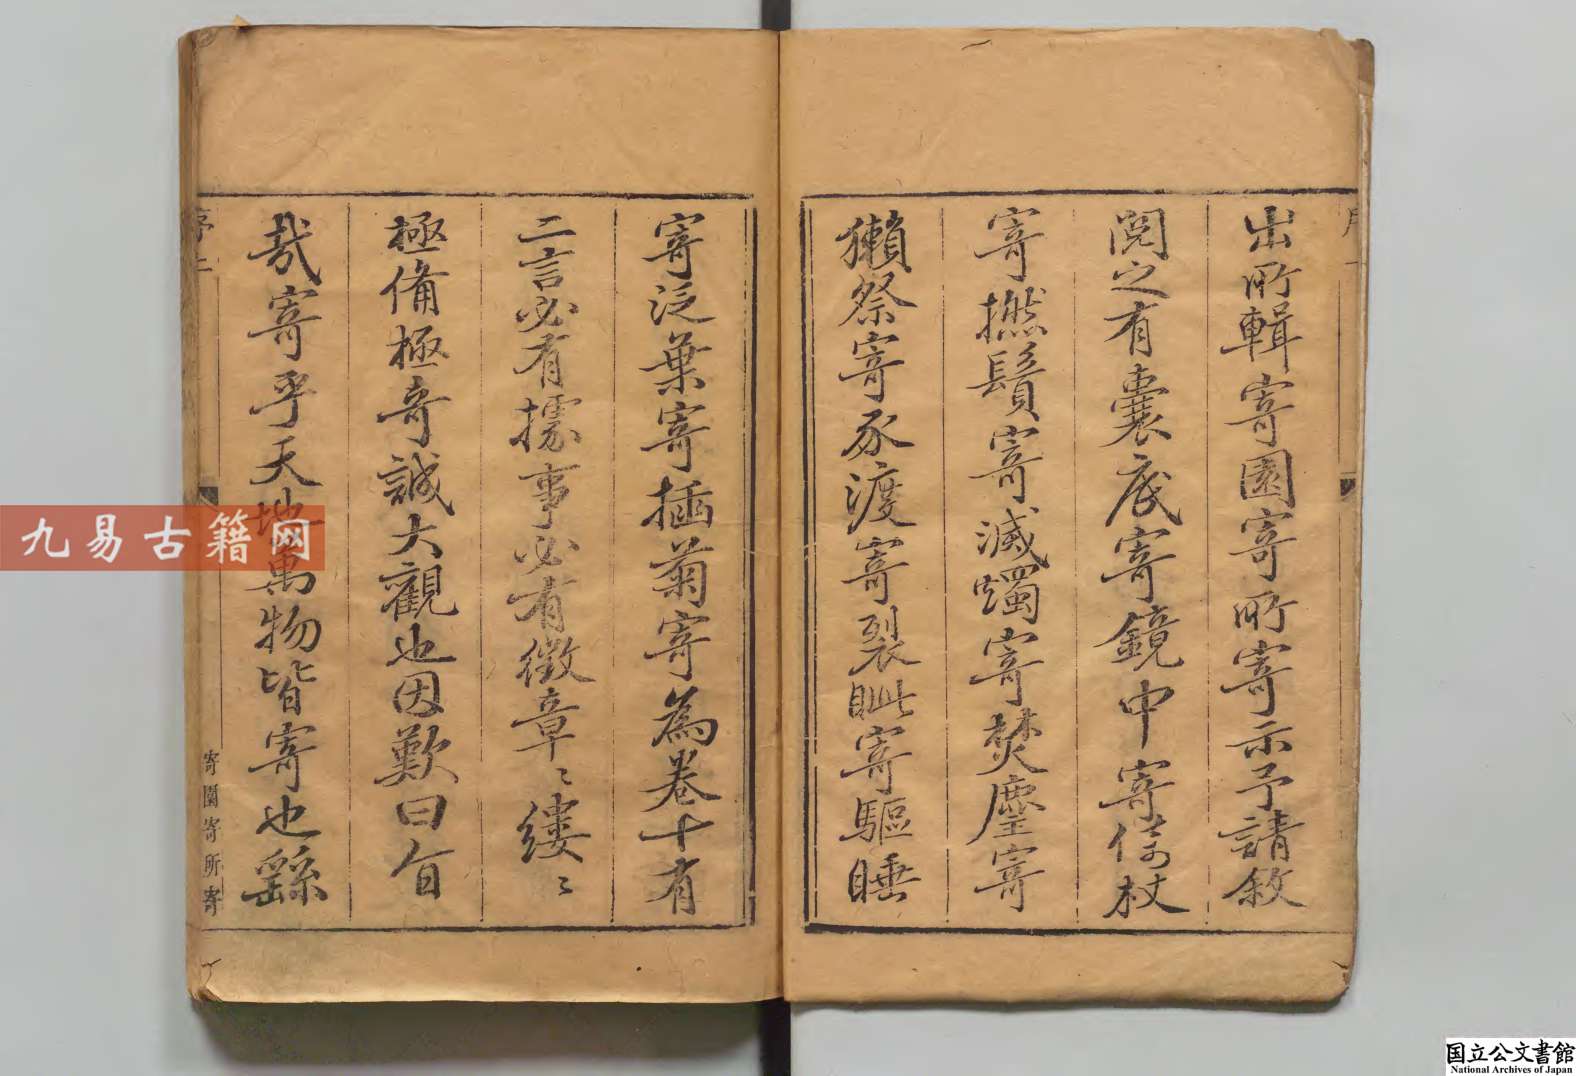 出所輯寄園寄所寄示予請敘
閱之有囊底寄鏡中寄倚杖
寄撚鬚寄滅燭寄焚麈寄
獺祭寄豕渡寄裂眦寄驅睡
寄泛葉寄插菊寄為卷十有
二言必有據事必有徵章〻縷〻
極備極奇誠大觀也因歎曰旨
哉寄乎天地萬物皆寄也繇
序二
寄園寄所寄
九易古籍网
国立公文書館
National Archives of Japan